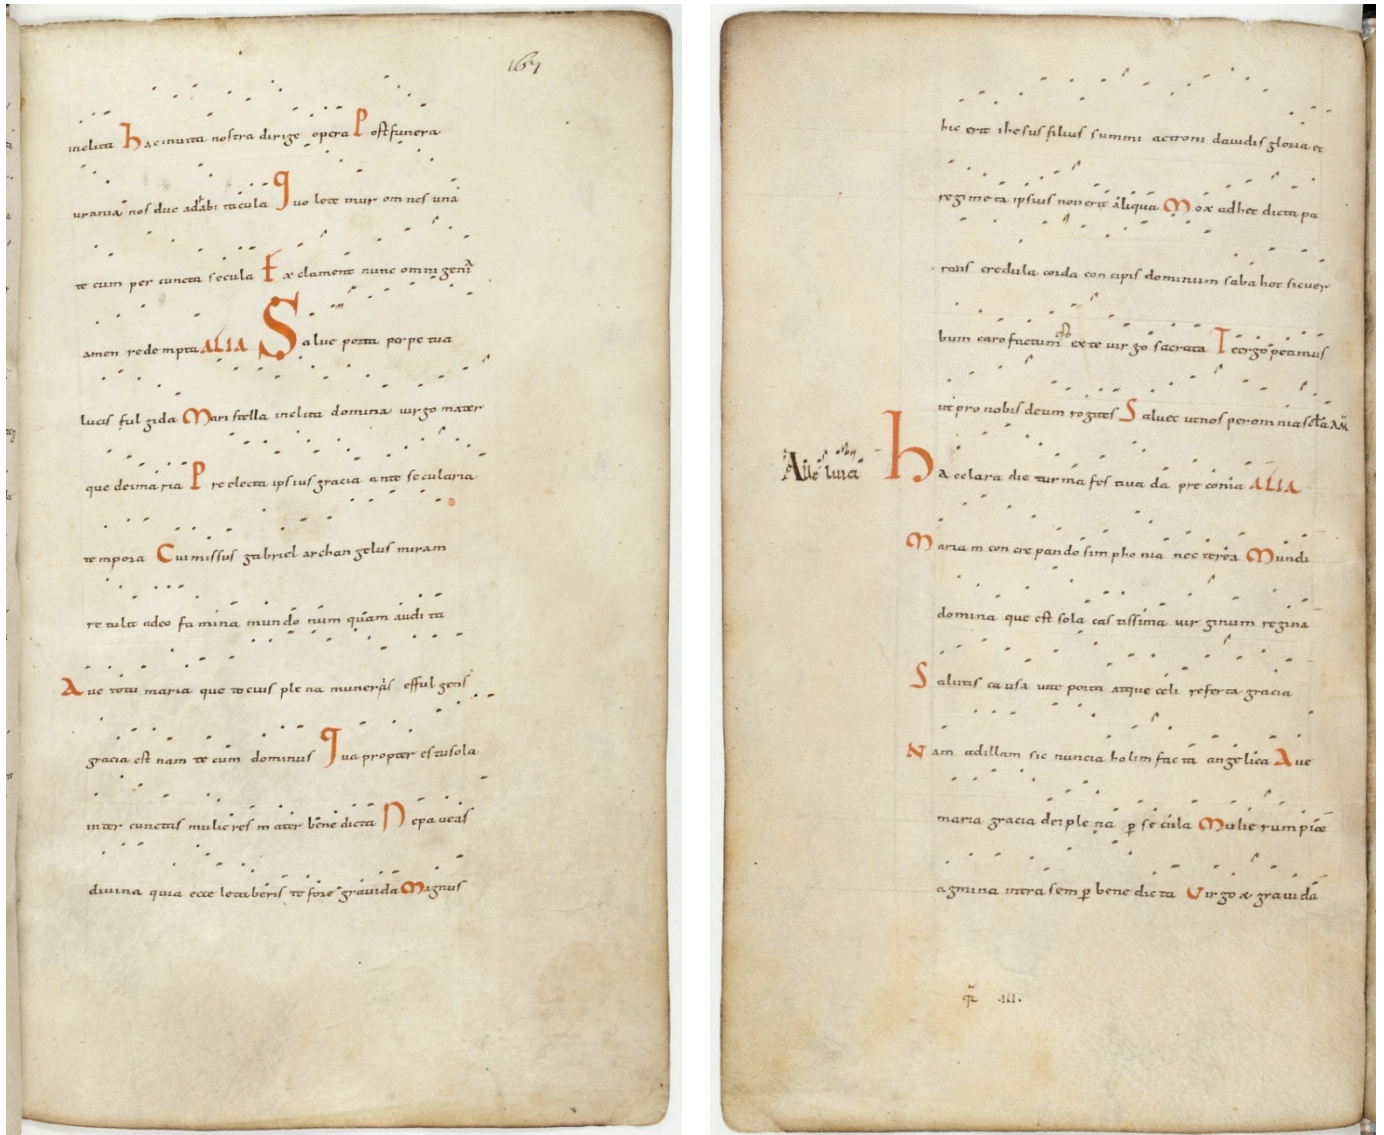 167
inclita hac in vita nostra dirige opera Post funera
urania nos duc ad abi tacula Quo lete mur om nes una
te cum per cuncta secula Ex clament nunc omni geni
amen redempta ALIA Salve porta perpe tua
lucis ful gida Mari stella inclita domina virgo mater
que dei maria Pre electa ipsius gracia ante secularia
tempora Cui missus gabriel archan gelus miram
re tulit adeo fa mina mundo num quam audi ta
Ave totu maria que tocius ple na muneris efful gens
gracia est nam te cum dominus Qua propter es tu sola
inter cunctas mulieres mater bene dicta Ne paveas
divina quia ecce letaberis te fore gravida Magnus
hic erit ihesus filius summi ac troni davidis gloria et
regimeta ipsius non erit aliqua Mox ad hec dicta pa
rans credula corda con cipis dominum saba hot sic ver
bum caro factum ex te vir go sacrata Te ergo petimus
ut pro nobis deum rogites Salvet ut nos per om nia scla AM
Alle luia Hac clara die turma fes tiva da pre conia ALIA
Mariam con cre pando sim pho nia nec terea Mundi
domina que est sola cas tissima vir ginum regina
Salutis ca usa vite porta atque celi referta gracia
Nam ad illam sic nuncia holim fac ta angelica Ave
maria gracia dei ple na p se cula Mulie rum pie
agmina intra sem p bene dic ta Virgo et gravida
qr .III.